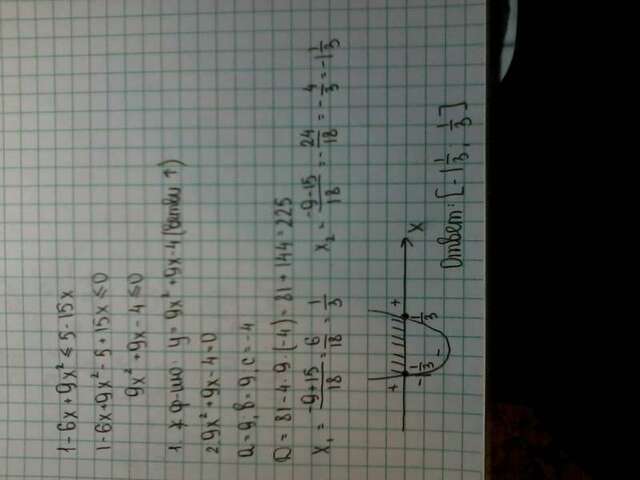 1-6x+9x² ≤ 5-15x
1-6x+9x²-5+15x ≤ 0
9x²+9x-4 ≤ 0
1. ф-цию: y = 9x²+9x-4 (ветви ↑)
2. 9x²+9x-4=0
a=9, b=9, c=-4
D = 81-4·9·(-4) = 81+144=225
x₁ = -9+15/18 = 6/18 = 1/3
x₂ = -9-15/18 = -24/18 = -4/3 = -1 1/3
+ - +
-1 1/3 1/3 x
Ответ: [-1 1/3; 1/3]